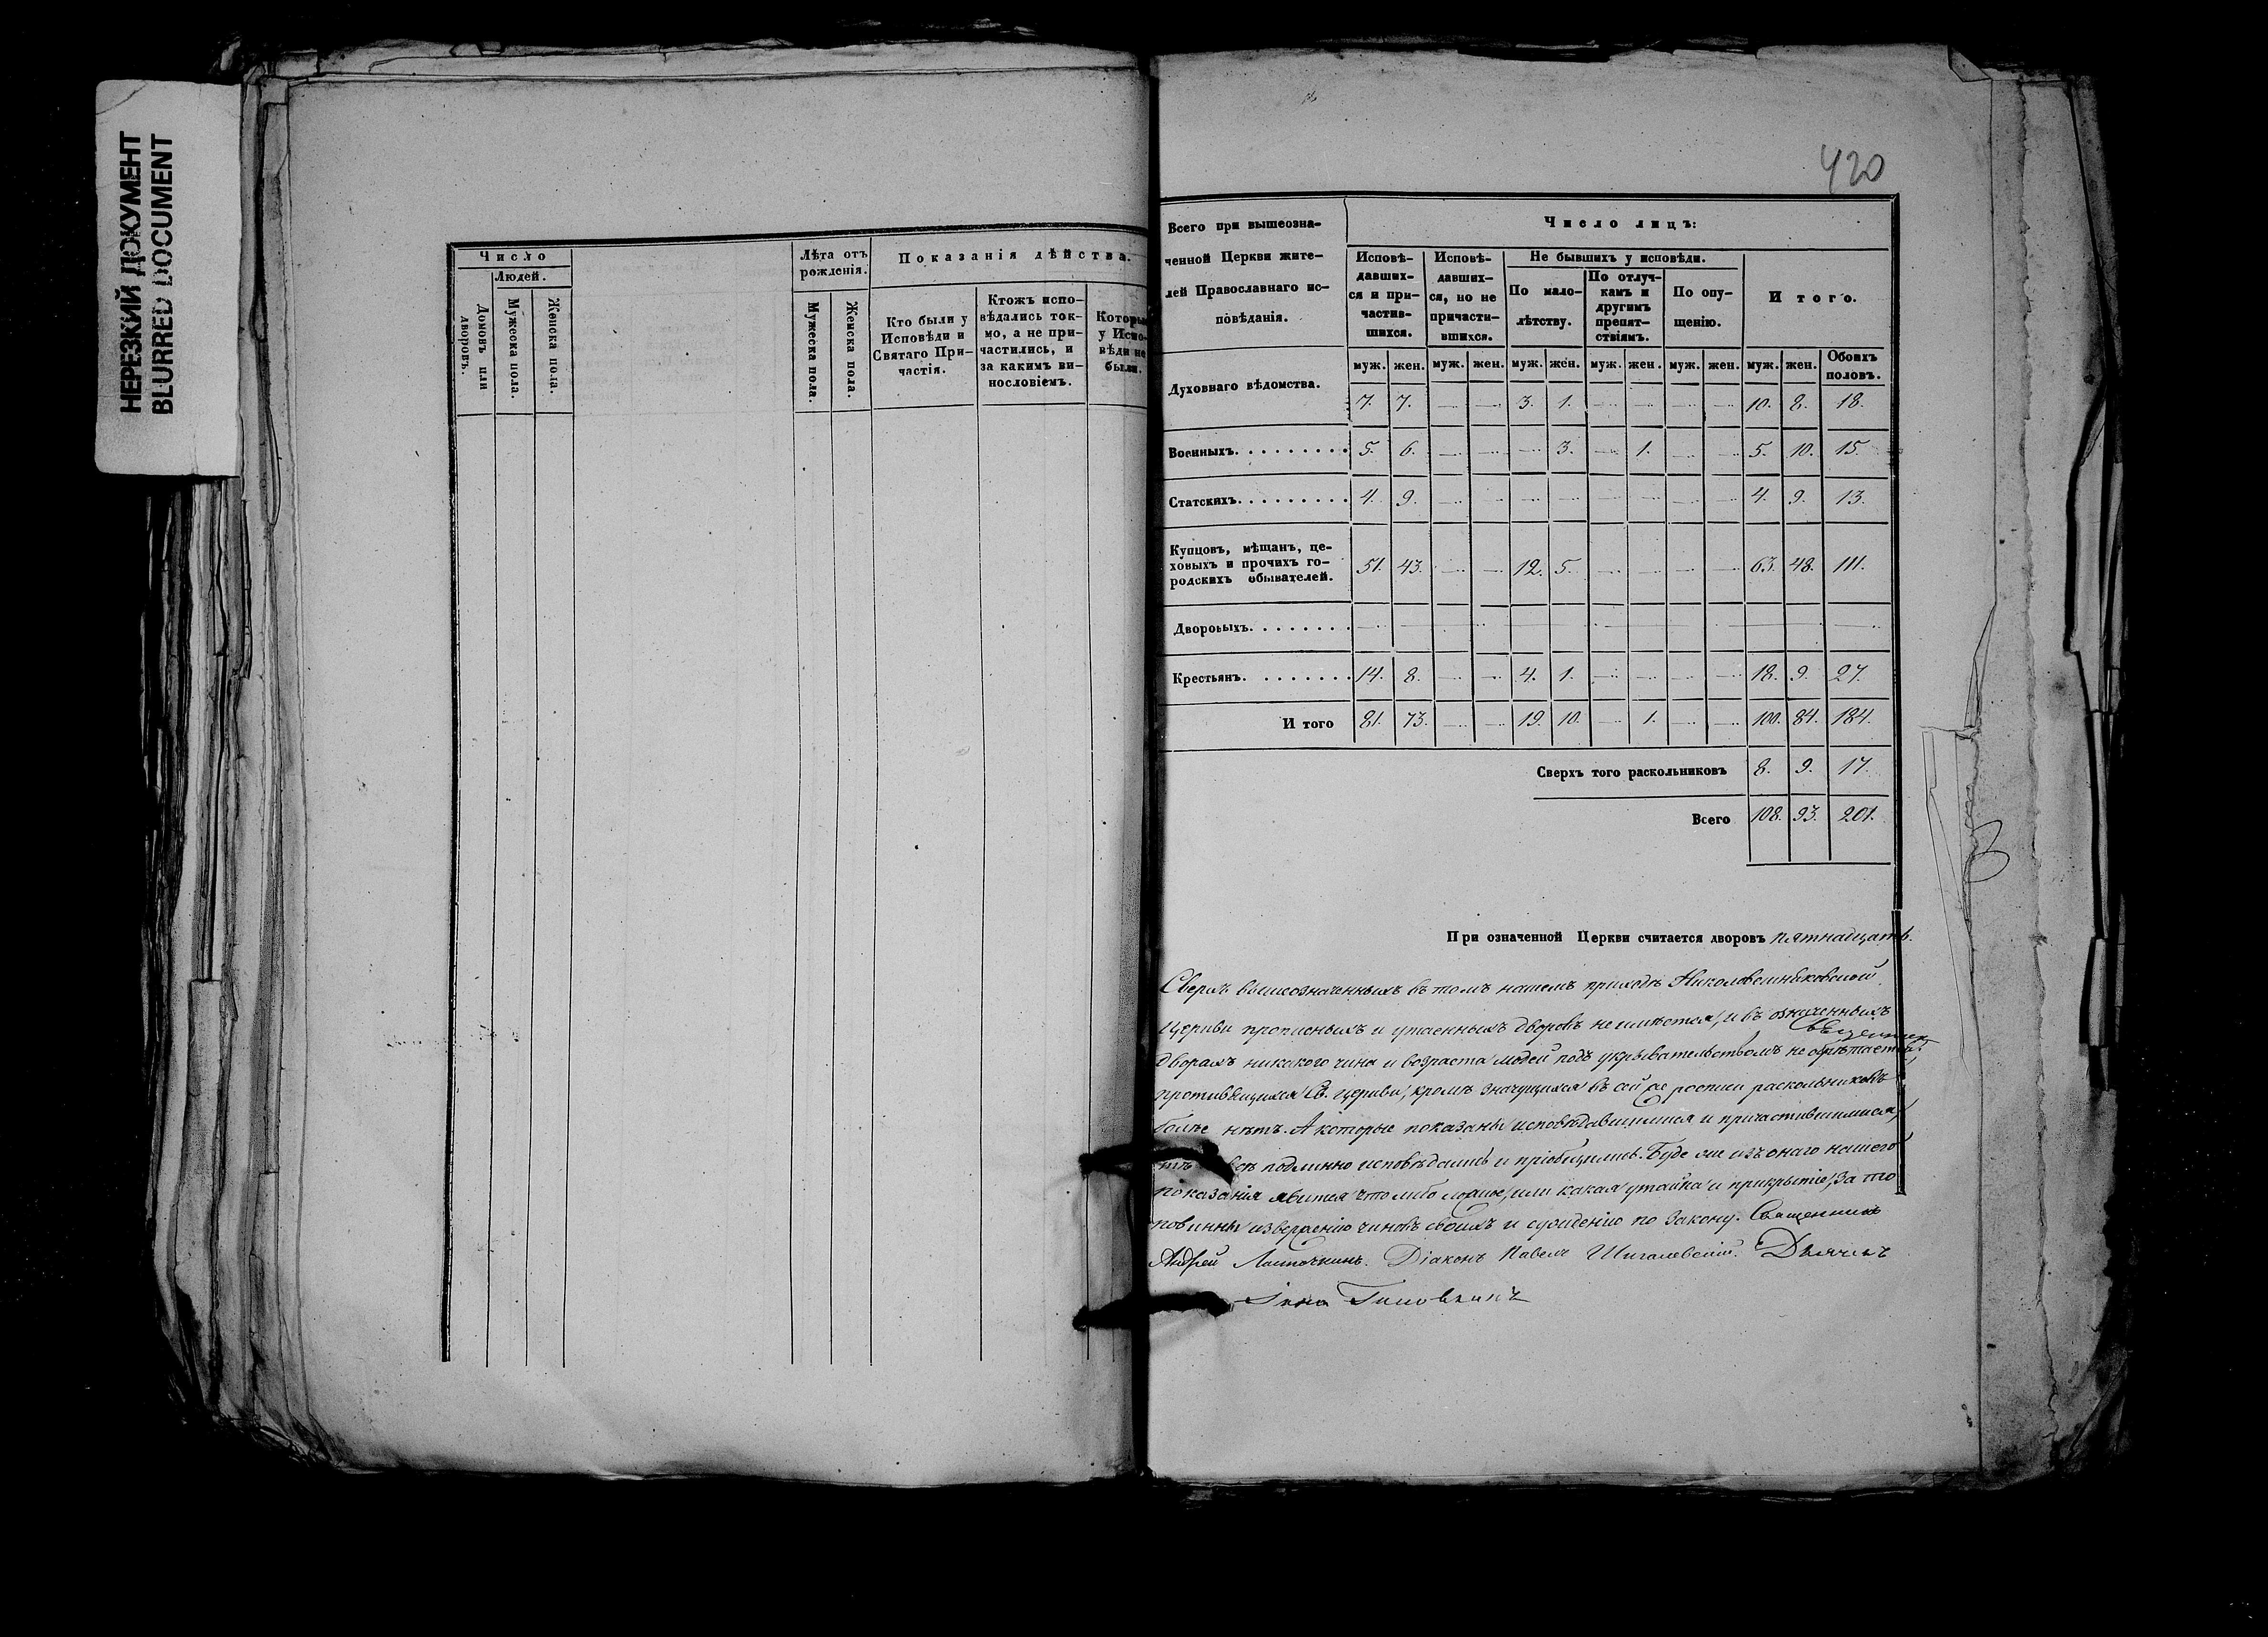 НЕРЕЗКИЙ ДОКУМЕНТ
BLURRED DOCUMENT
Число
Людей.
Домовъ или дворовъ.
Мужеска пола.
Женска пола.
Лѣта отъ рожденія.
Мужеска пола.
Женска пола.
Показанія дѣйства.
Кто были у Исповѣди и Святаго Причастія.
Ктожъ исповѣдались токмо, а не причастились, и за какимъ винословіемъ.
у Испо-
вѣди не
были.
420
Всего при вышеозна-
ченной Церкви жите-
лей Православнаго ис-
повѣданія.
Число лицъ:
Исповѣ-
давших-
ся и при-
частив-
шихся.
Исповѣ-
давших-
ся, но не
причасти-
вшихся.
Не бывшихъ у исповѣди.
По мало-
лѣтству.
По отлуч-
камъ и
другимъ
препят-
ствіямъ.
По опу-
щенію.
И того.
муж. жен. муж. жен. муж. жен. муж. жен. муж. жен. муж. жен. Обоихъ половъ.
Духовнаго вѣдомства. 7. 7. — — 3. 1. — — — — 10. 8. 18.
Военныхъ. 5. 6. — — — 3. — 1. — — 5. 10. 15.
Статскихъ. 4. 9. — — — — — — — — 4. 9. 13.
Купцовъ, мѣщанъ, це-
ховыхъ и прочихъ го-
родскихъ обывателей. 51. 43. — — 12. 5. — — — — 63. 48. 111.
Дворовыхъ. — — — — — — — — — — — — —
Крестьянъ. 14. 8. — — 4. 1. — — — — 18. 9. 27.
И того 81. 73. — — 19. 10. — 1. — — 100. 84. 184.
Сверхъ того раскольниковъ 8. 9. 17.
Всего 108. 93. 201.
При означенной Церкви считается дворовъ пятнадцать.
Сверхъ вышеозначенныхъ въ томъ нашемъ приходѣ
церкви прописныхъ и утаенныхъ дворовъ не имѣется, и въ означенныхъ
дворахъ никакого чина и возраста людей подъ укрывательствомъ не обрѣтается,
противящихся Св. церкви, кромѣ значущихся въ сей же росписи раскольниковъ
болѣе нѣтъ. А которые показаны исповѣдавшимися и причастившимися,
тѣ всѣ подлинно исповѣдались и пріобщились. Буде же изъ онаго нашего
показанія явится что либо ложное, или какая утайка и прикрытіе, за то
повинны изверженію чиновъ своихъ и сужденію по закону. Священникъ
Андрей Ласточкинъ. Діаконъ Павелъ Шигалевскій. Дьячекъ